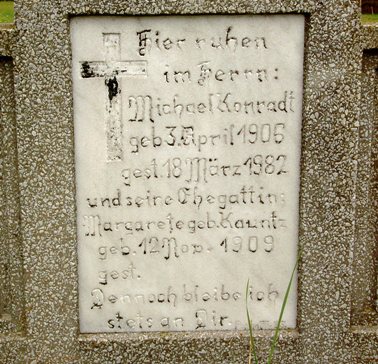 Hier ruhen
im Herrn:
Michael Konradt
geb 3. April 1906
gest. 18 März 1982
und seine Ehegattin:
Margarete geb. Kauntz
geb. 12 Nov. 1909
gest.
Dennoch bleibe ich
stets an Dir.